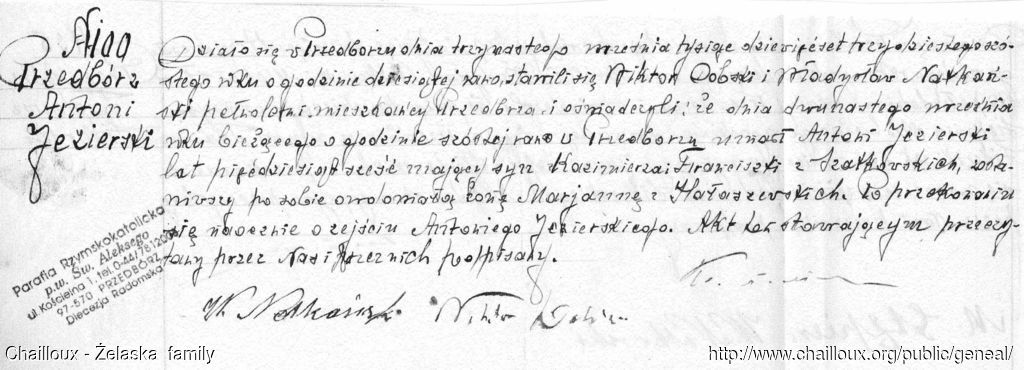 Przedbórz
Antoni
Jezierski
Działo się w Przedborzu dnia trzynastego września tysiąc dziewięćset trzydziestego szó-
stego roku o godzinie dziesiątej rano, stawili się Wiktor Dobski i Władysław Natkań-
ski pełnoletni, mieszkańcy Przedborza i oświadczyli: że dnia dwunastego września
roku bieżącego o godzinie szóstej rano w Przedborzu umarł Antoni Jezierski
lat pięćdziesiąt sześć mający syn Kazimierza i Franciszki z Szatkowskich, zosta-
wiwszy po sobie owdowiałą żonę Marjannę z Hałaszewskich. Po przekonaniu
się naocznie o zejściu Antoniego Jezierskiego. Akt ten stawającym przeczy-
tany przez Nas i podpisany.
Wł. Natkański Wiktor Dobski
Parafia Rzymskokatolicka
p.w. Św. Aleksego
ul. Kościelna 1, tel. 0-44/7812
97-570 PRZEDBÓRZ
Diecezja Radomska
Chailloux - Żelaska family
http://www.chailloux.org/public/geneal/